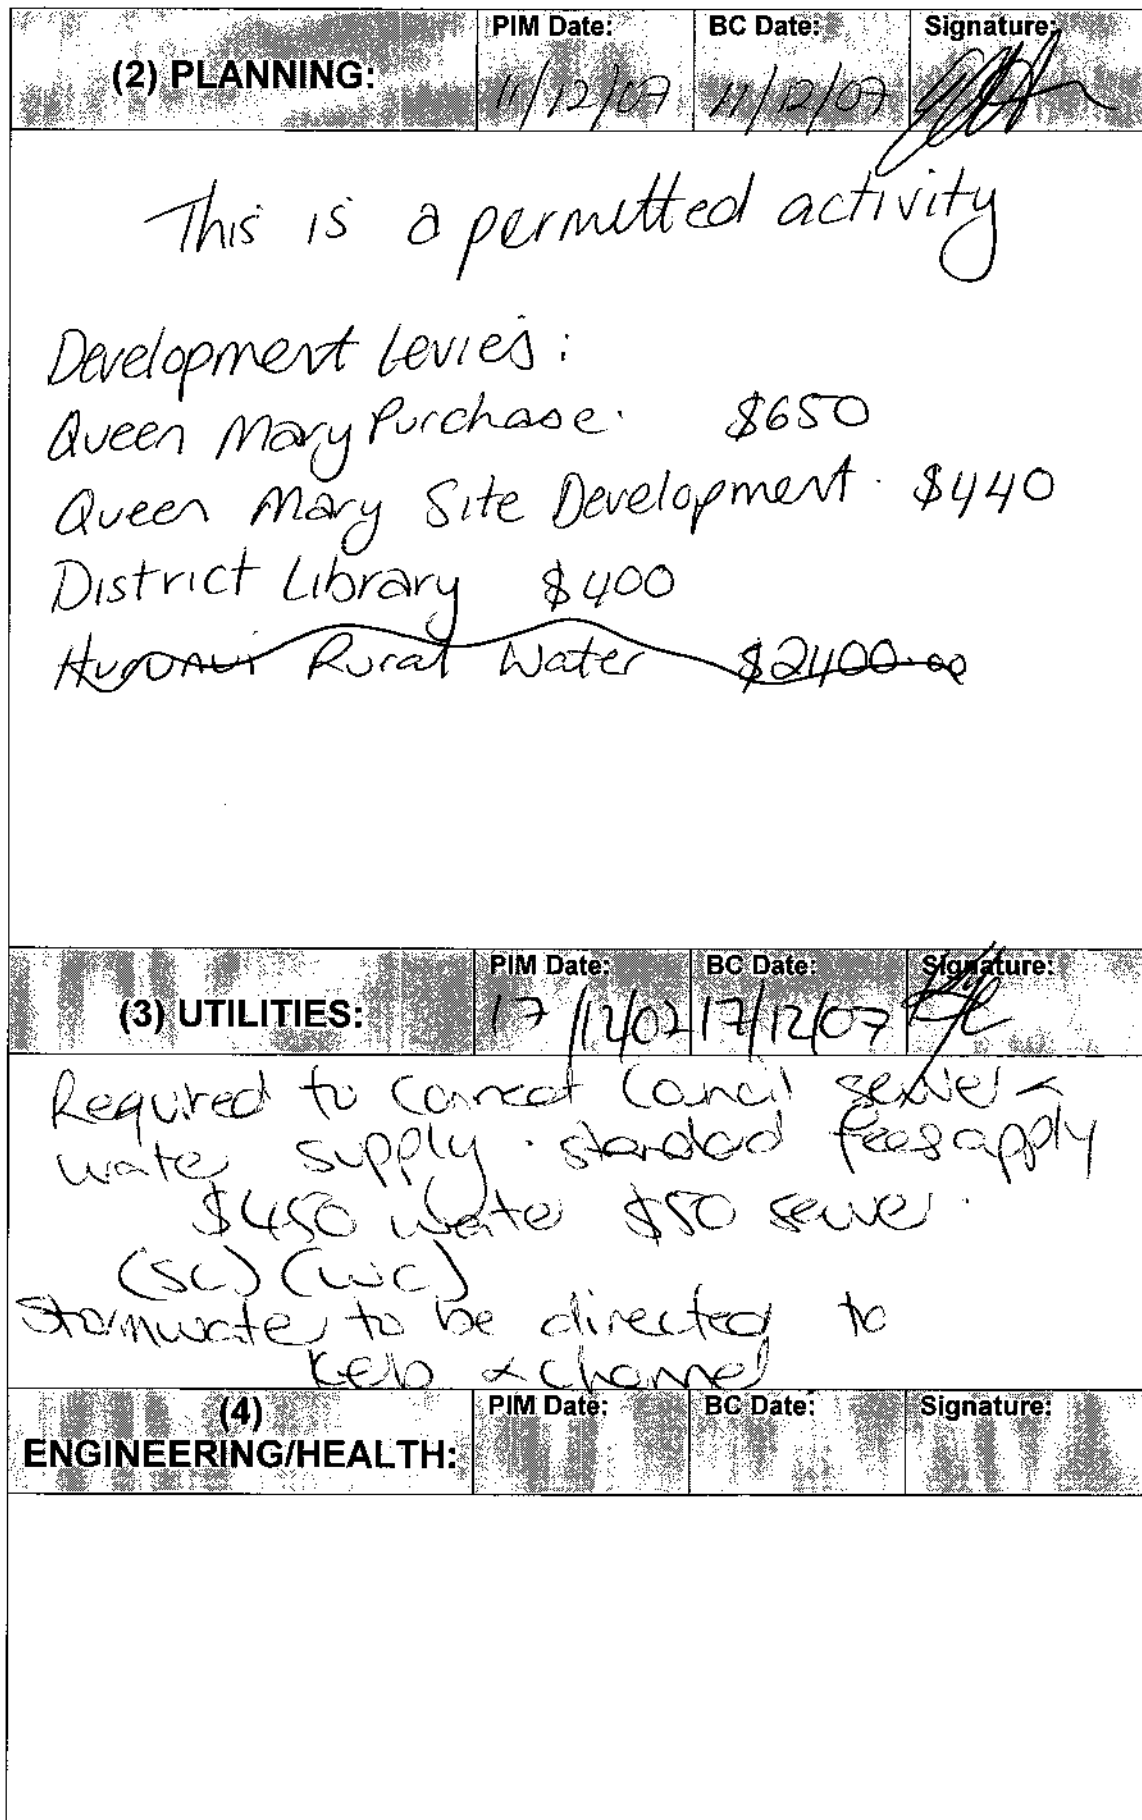 (2) PLANNING: PIM Date: 11/12/07 BC Date: 11/12/07 Signature:
This is a permitted activity
Development Levies:
Queen Mary Purchase. $650
Queen Mary Site Development. $440
District Library $400
Hurunui Rural Water $2400.00
(3) UTILITIES: PIM Date: 17/12/07 BC Date: 17/12/07 Signature:
Required to connect Council sewer &
water supply. standard fees apply
$450 water $50 sewer.
(SC) (WC)
Stormwater to be directed to
Kerb & Channel
(4) ENGINEERING/HEALTH: PIM Date: BC Date: Signature: